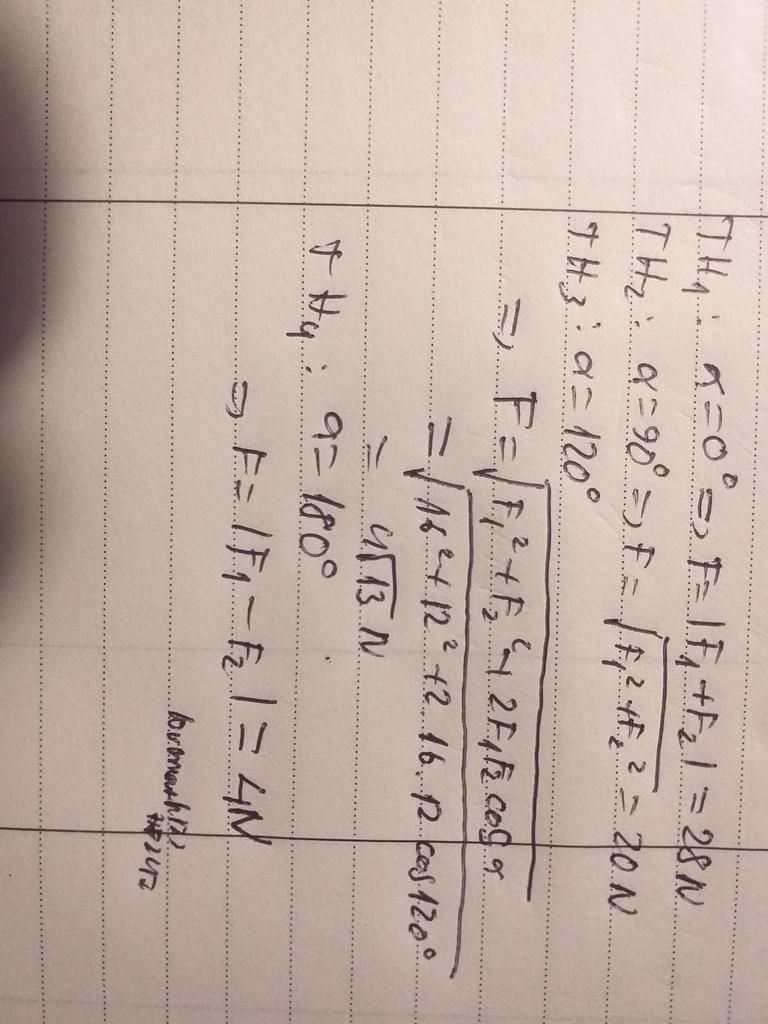 TH₁: α=0° => F=|F₁+F₂|=28N
TH₂: α=90° => F=√F₁²+F₂²=20N
TH₃: α=120°
=> F=√F₁²+F₂²+2F₁F₂cosα
=√16²+12²+2.16.12.cos120°
=4√13 N
TH₄: α=180°
=> F=|F₁-F₂|=4N